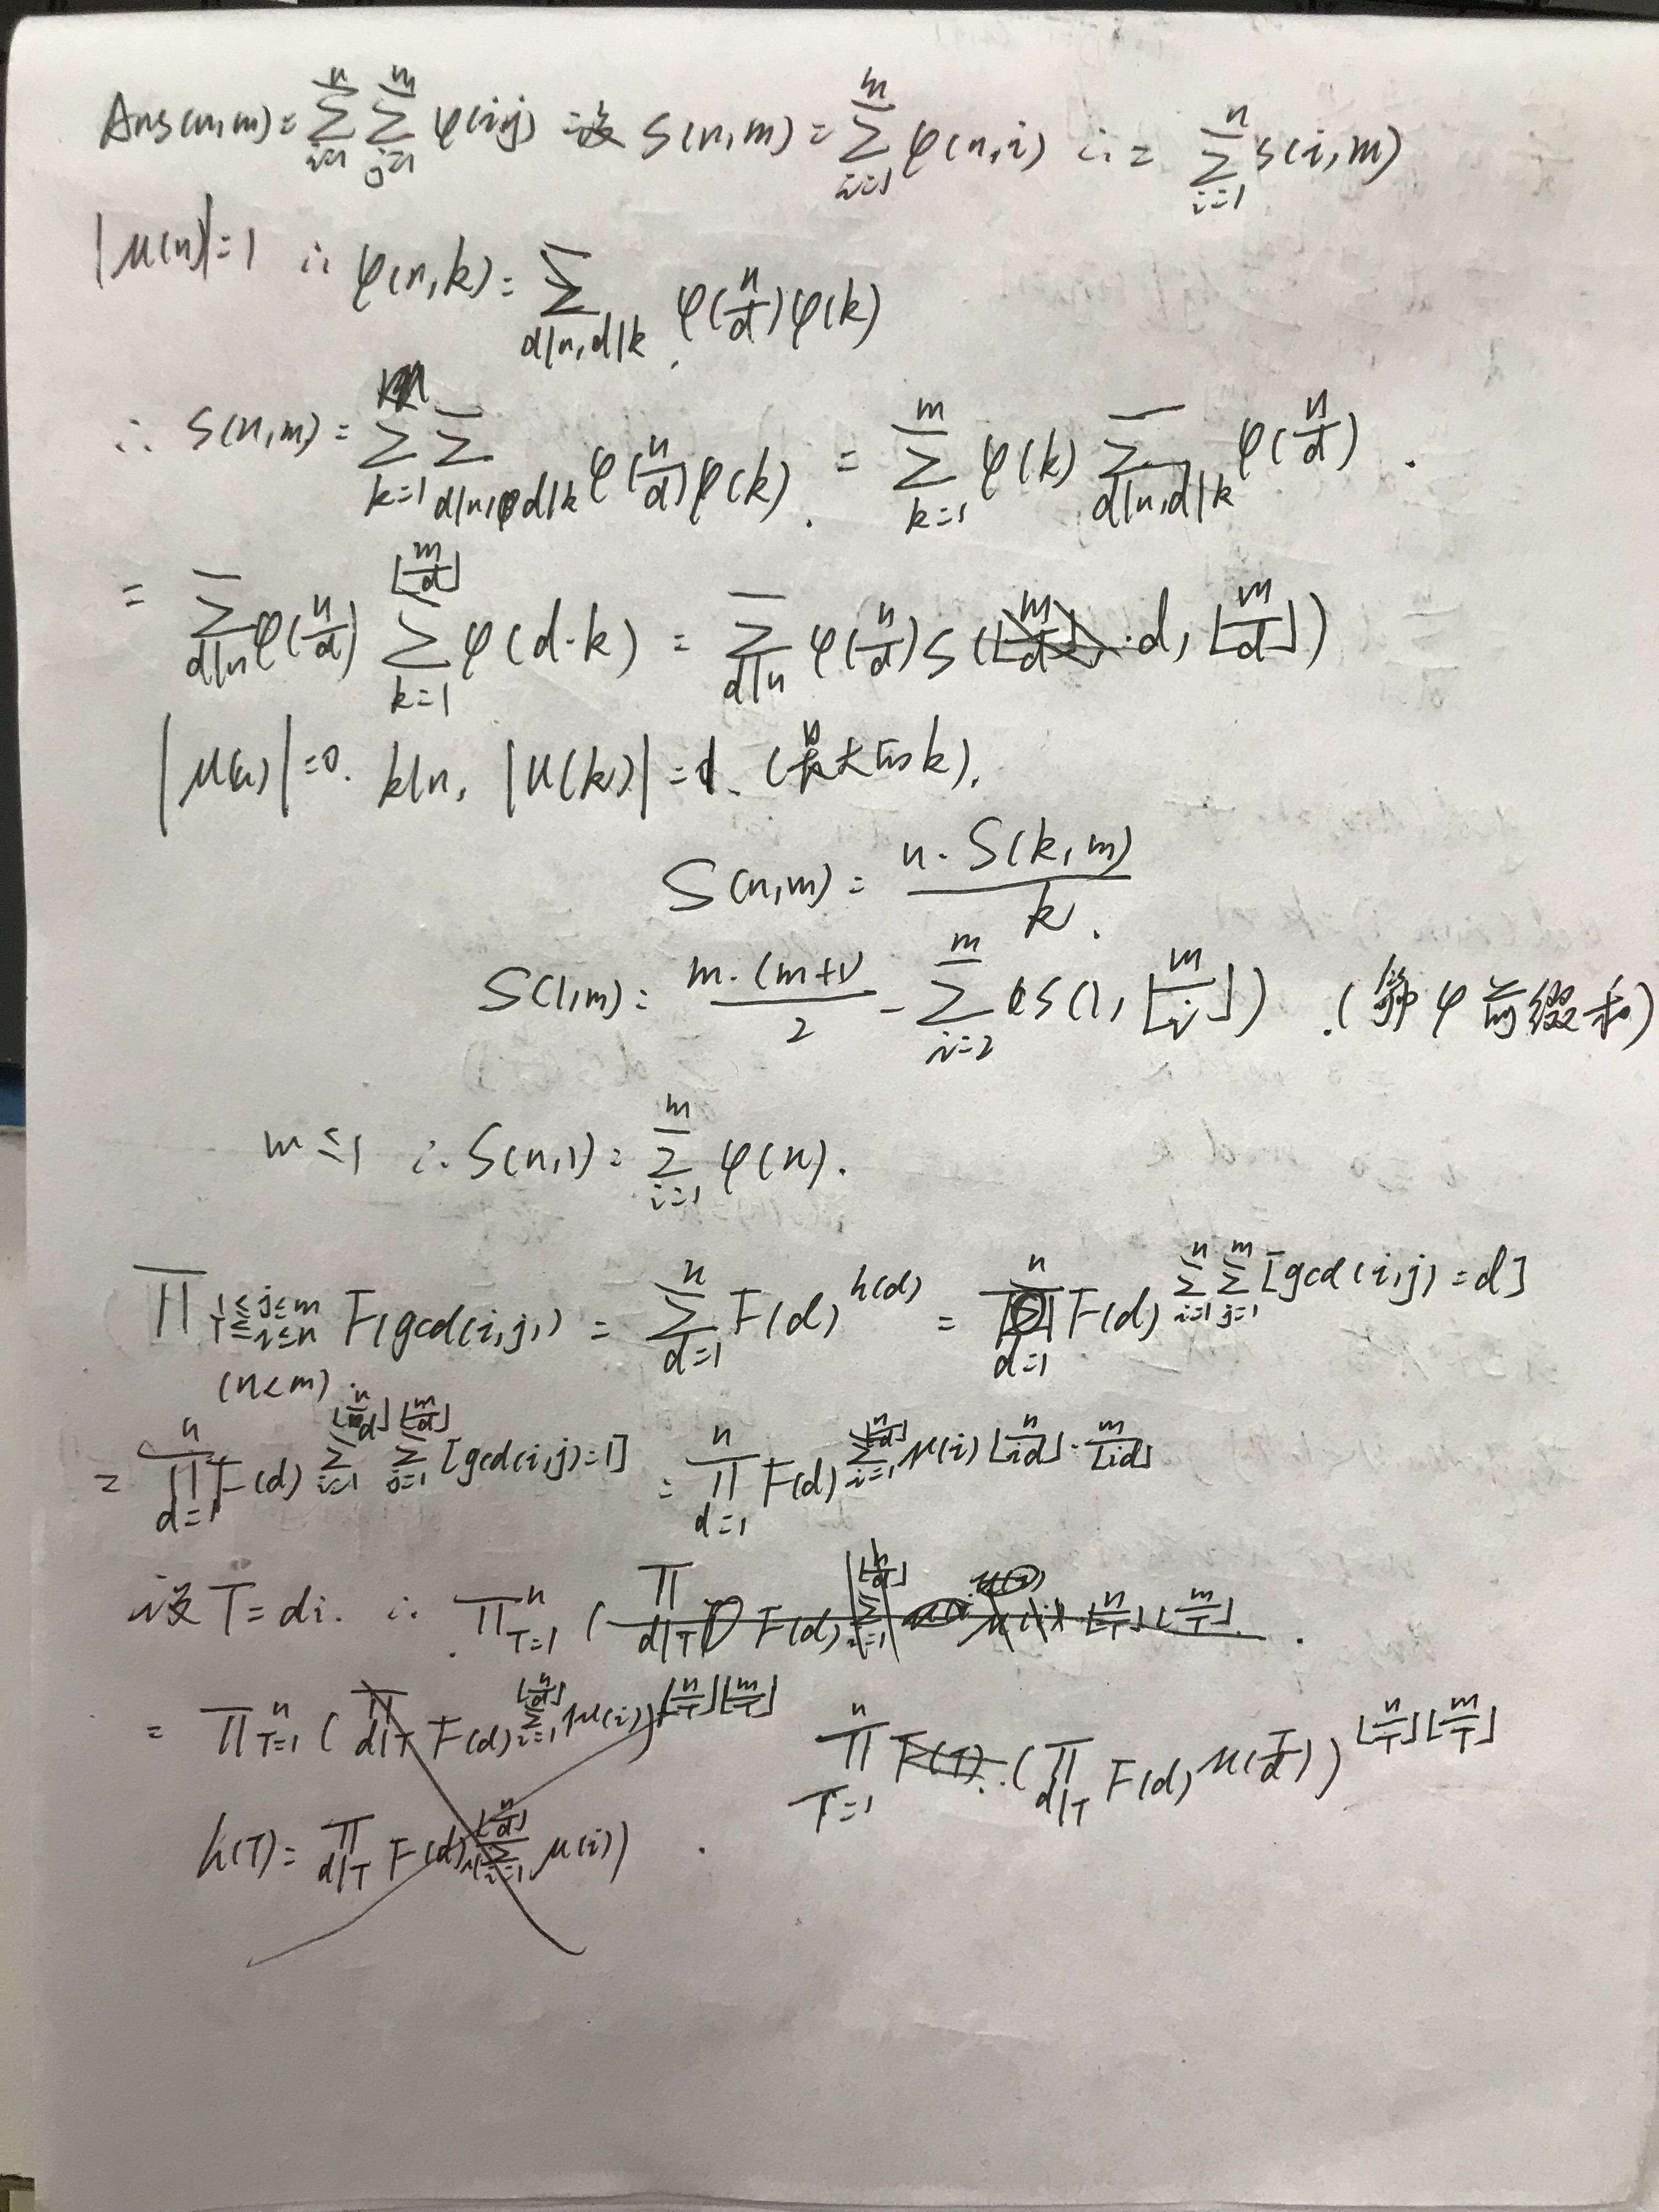 Ans(n,m) = ∑_{i=1}^{n} ∑_{j=1}^{m} φ(ij) 设 S(n,m) = ∑_{i=1}^{m} φ(n,i) ∴ = ∑_{i=1}^{n} S(i,m)
|μ(n)|=1 ∴ φ(n,k) = ∑_{d|n,d|k} φ(n/d)φ(k)
∴ S(n,m) = ∑_{k=1}^{m} ∑_{d|n,d|k} φ(n/d)φ(k). = ∑_{k=1}^{m} φ(k) ∑_{d|n,d|k} φ(n/d).
= ∑_{d|n} φ(n/d) ∑_{k=1}^{⌊m/d⌋} φ(d·k) = ∑_{d|n} φ(n/d) S(d, ⌊m/d⌋)
|μ(n)|=0. k|n, |μ(k)|=1. (最大的k).
S(n,m) = n·S(k,m)/k.
S(1,m) = m·(m+1)/2 - ∑_{i=2}^{m} S(1, ⌊m/i⌋). (算φ前缀和)
m≤1 ∴ S(n,1) = ∑_{i=1}^{m} φ(n).
∏_{1≤j≤m, 1≤i≤n} F(gcd(i,j)) = ∑_{d=1}^{n} F(d)^{h(d)} = ∏_{d=1}^{n} F(d)^{∑_{i=1}^{n} ∑_{j=1}^{m} [gcd(i,j)=d]}
(n<m)
= ∏_{d=1}^{n} F(d)^{∑_{i=1}^{⌊n/d⌋} ∑_{j=1}^{⌊m/d⌋} [gcd(i,j)=1]} = ∏_{d=1}^{n} F(d)^{∑_{i=1}^{⌊n/d⌋} μ(i)⌊n/id⌋·⌊m/id⌋}
设 T=di. ∴ ∏_{T=1}^{n} (∏_{d|T} F(d) ⌊n/T⌋⌊m/T⌋.
= ∏_{T=1}^{n} (∏_{d|T} F(d)^{∑_{i=1}^{⌊n/d⌋} μ(i)})^{⌊n/T⌋⌊m/T⌋} ∏_{T=1}^{n} F(T).(∏_{d|T} F(d)^{μ(T/d)})^{⌊n/T⌋⌊m/T⌋}
h(T) = ∏_{d|T} F(d)^{∑_{i=1}^{⌊n/d⌋} μ(i)}.